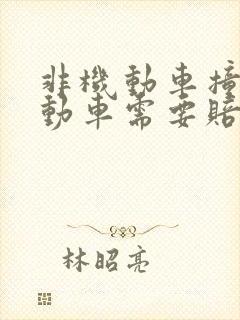 非機動車撞
動車需要賠
林昭亮